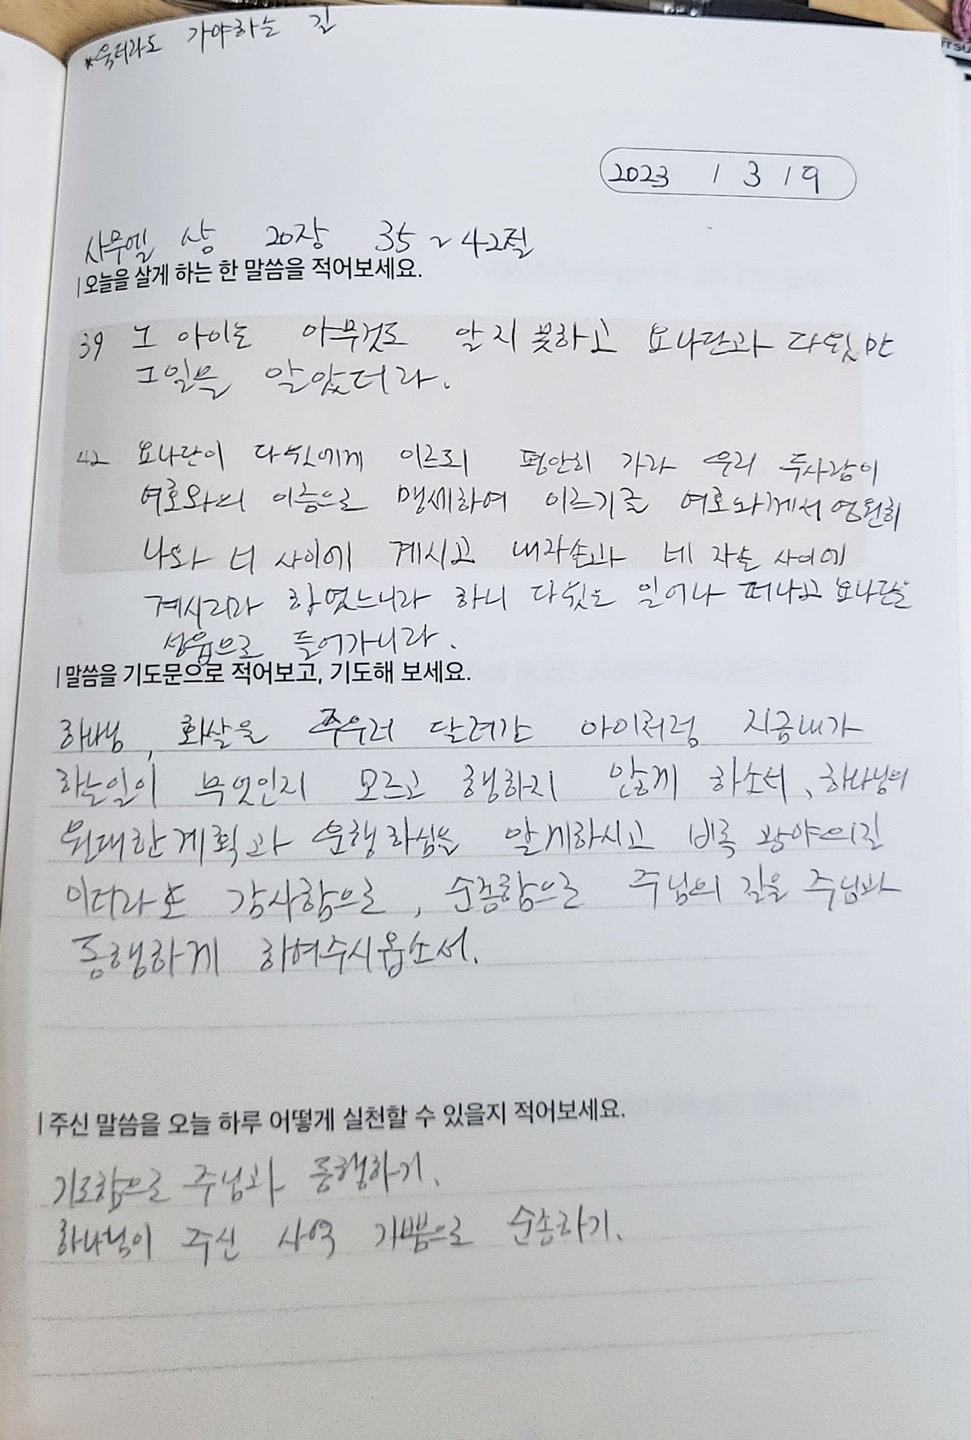 *울더라도 가야하는 길
2023 / 3 / 9
사무엘 상 20장 35~42절
오늘을 살게 하는 한 말씀을 적어보세요.
39 그 아이는 아무것도 알지 못하고 요나단과 다윗만
그일을 알았더라.
42 요나단이 다윗에게 이르되 평안히 가라 우리 두사람이
여호와의 이름으로 맹세하여 이르기를 여호와께서 영원히
나와 너 사이에 계시고 내자손과 네 자손 사이에
계시리라 하였느니라 하니 다윗은 일어나 떠나고 요나단은
성읍으로 들어가니라.
말씀을 기도문으로 적어보고, 기도해 보세요.
하나님, 화살을 주우러 달려간 아이처럼 지금내가
하는일이 무엇인지 모르고 행하지 않게 하소서, 하나님의
위대한계획과 운행하심을 알게하시고 비록 광야의길
이더라도 감사함으로, 순종함으로 주님의 길을 주님과
동행하게 하여주시옵소서.
주신 말씀을 오늘 하루 어떻게 실천할 수 있을지 적어보세요.
기도함으로 주님과 동행하기.
하나님이 주신 사역 기쁨으로 순종하기.